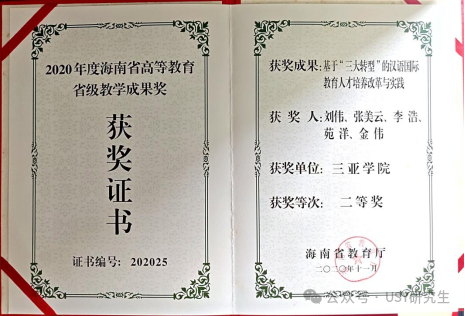 2020年度海南省高等教育
省级教学成果奖
获奖证书
证书编号: 202025
获奖成果: 基于“三大转型”的汉语国际
教育人才培养改革与实践
获奖人: 刘伟、张美云、李浩、
苑洋、金伟
获奖单位: 三亚学院
获奖等次: 二等奖
海南省教育厅
二〇二〇年十一月
公众号·USY研究生